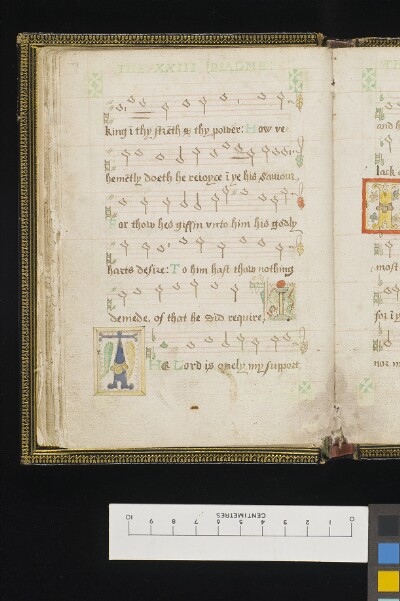 THE XXIII PSALME
king ī thy strēth & thy power: How ve
hemētly doeth he reioyce ī ye his saviour
For thow hes giffin vnto him his godly
harts desire: To him hast thow nothing
demede. of that he did require,
THe Lord is onely my support
TH
and h
lack
most
for ī y
nor m
10 9 8 7 6 5 4 3 2 1 0
CENTIMETRES